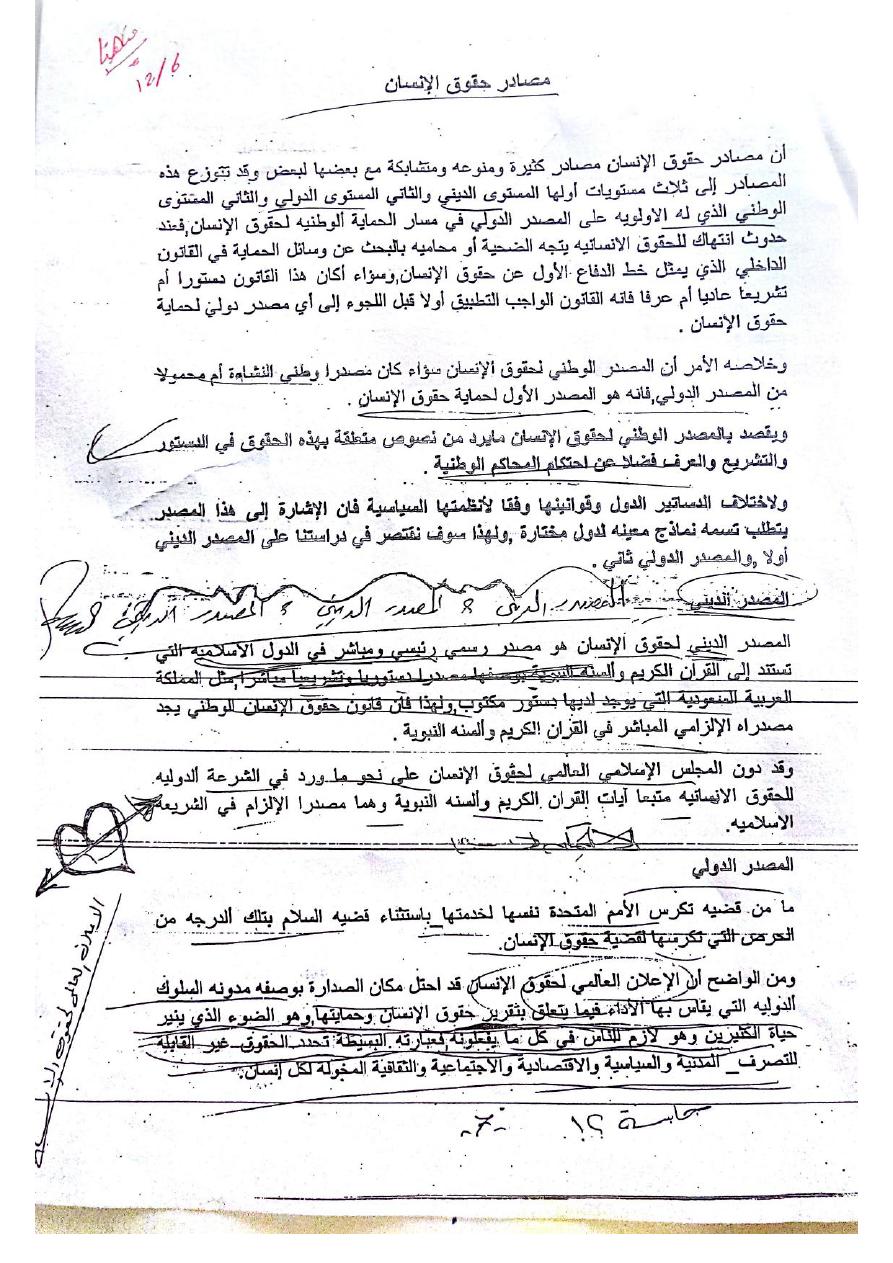 12/6
مصادر حقوق الإنسان
أن مصادر حقوق الإنسان مصادر كثيرة ومنوعه ومتشابكة مع بعضها لبعض وقد تتوزع هذه
المصادر إلى ثلاث مستويات أولها المستوى الديني والثاني المستوى الدولي والثاني المستوى
الوطني الذي له الاولويه على المصدر الدولي في مسار الحماية الوطنيه لحقوق الإنسان,فعند
حدوث انتهاك للحقوق الانسانيه يتجه الضحية أو محاميه بالبحث عن وسائل الحماية في القانون
الداخلي الذي يمثل خط الدفاع الأول عن حقوق الإنسان,وسؤاء أكان هذا القانون دستورا أم
تشريعا عاديا أم عرفا فانه القانون الواجب التطبيق أولا قبل اللجوء إلى أي مصدر دولي لحماية
حقوق الإنسان .
وخلاصه الأمر أن المصدر الوطني لحقوق الإنسان سؤاء كان مصدرا وطني النشاءة أم محمولا
من المصدر الدولي,فانه هو المصدر الأول لحماية حقوق الإنسان .
ويقصد بالمصدر الوطني لحقوق الإنسان مايرد من نصوص متعلقة بهذه الحقوق في الدستور
والتشريع والعرف فضلا عن احتكام المحاكم الوطنية .
ولاختلاف الدساتير الدول وقوانينها وفقا لأنظمتها السياسية فان الإشارة إلى هذا المصدر
يتطلب تسمه نماذج معينه لدول مختارة ,ولهذا سوف نقتصر في دراستنا على المصدر الديني
أولا ,والمصدر الدولي ثاني .
المصدر الديني المصدر الديني ؟ المصدر الديني ؟ المصدر الديني
المصدر الديني لحقوق الإنسان هو مصدر رسمي رئيسي ومباشر في الدول الاسلاميه التي
تستند إلى القران الكريم وألسنه النبوية بوصفها مصدرا دستوريا وتشريعيا مباشرا,مثل المملكة
العربية السعودية التي يوجد لديها دستور مكتوب,ولهذا فأن قانون حقوق الإنسان الوطني يجد
مصدراه الإلزامي المباشر في القران الكريم وألسنه النبوية .
وقد دون المجلس الإسلامي العالمي لحقوق الإنسان على نحو ما ورد في الشرعة الدوليه
للحقوق الانسانيه متبعا آيات القران الكريم وألسنه النبوية وهما مصدرا الإلزام في الشريعه
الاسلاميه.
المصدر الدولي
ما من قضيه تكرس الأمم المتحدة نفسها لخدمتها_باستثناء قضيه السلام بتلك الدرجه من
الحرص التي تكرسها لقضية حقوق الإنسان.
ومن الواضح أن الإعلان العالمي لحقوق الإنسان قد احتل مكان الصدارة بوصفه مدونه السلوك
الدوليه التي يقاس بها الأداء فيما يتعلق بتقرير حقوق الإنسان وحمايتها,وهو الضوء الذي ينير
حياة الكثيرين وهو لازم للناس في كل ما يفعلونه,فعبارته البسيطة تحدد الحقوق غير القابلة
للتصرف_ المدنية والسياسية والاقتصادية والاجتماعية والثقافية المخولة لكل إنسان.
الاعلان العالمي لحقوق
-7-